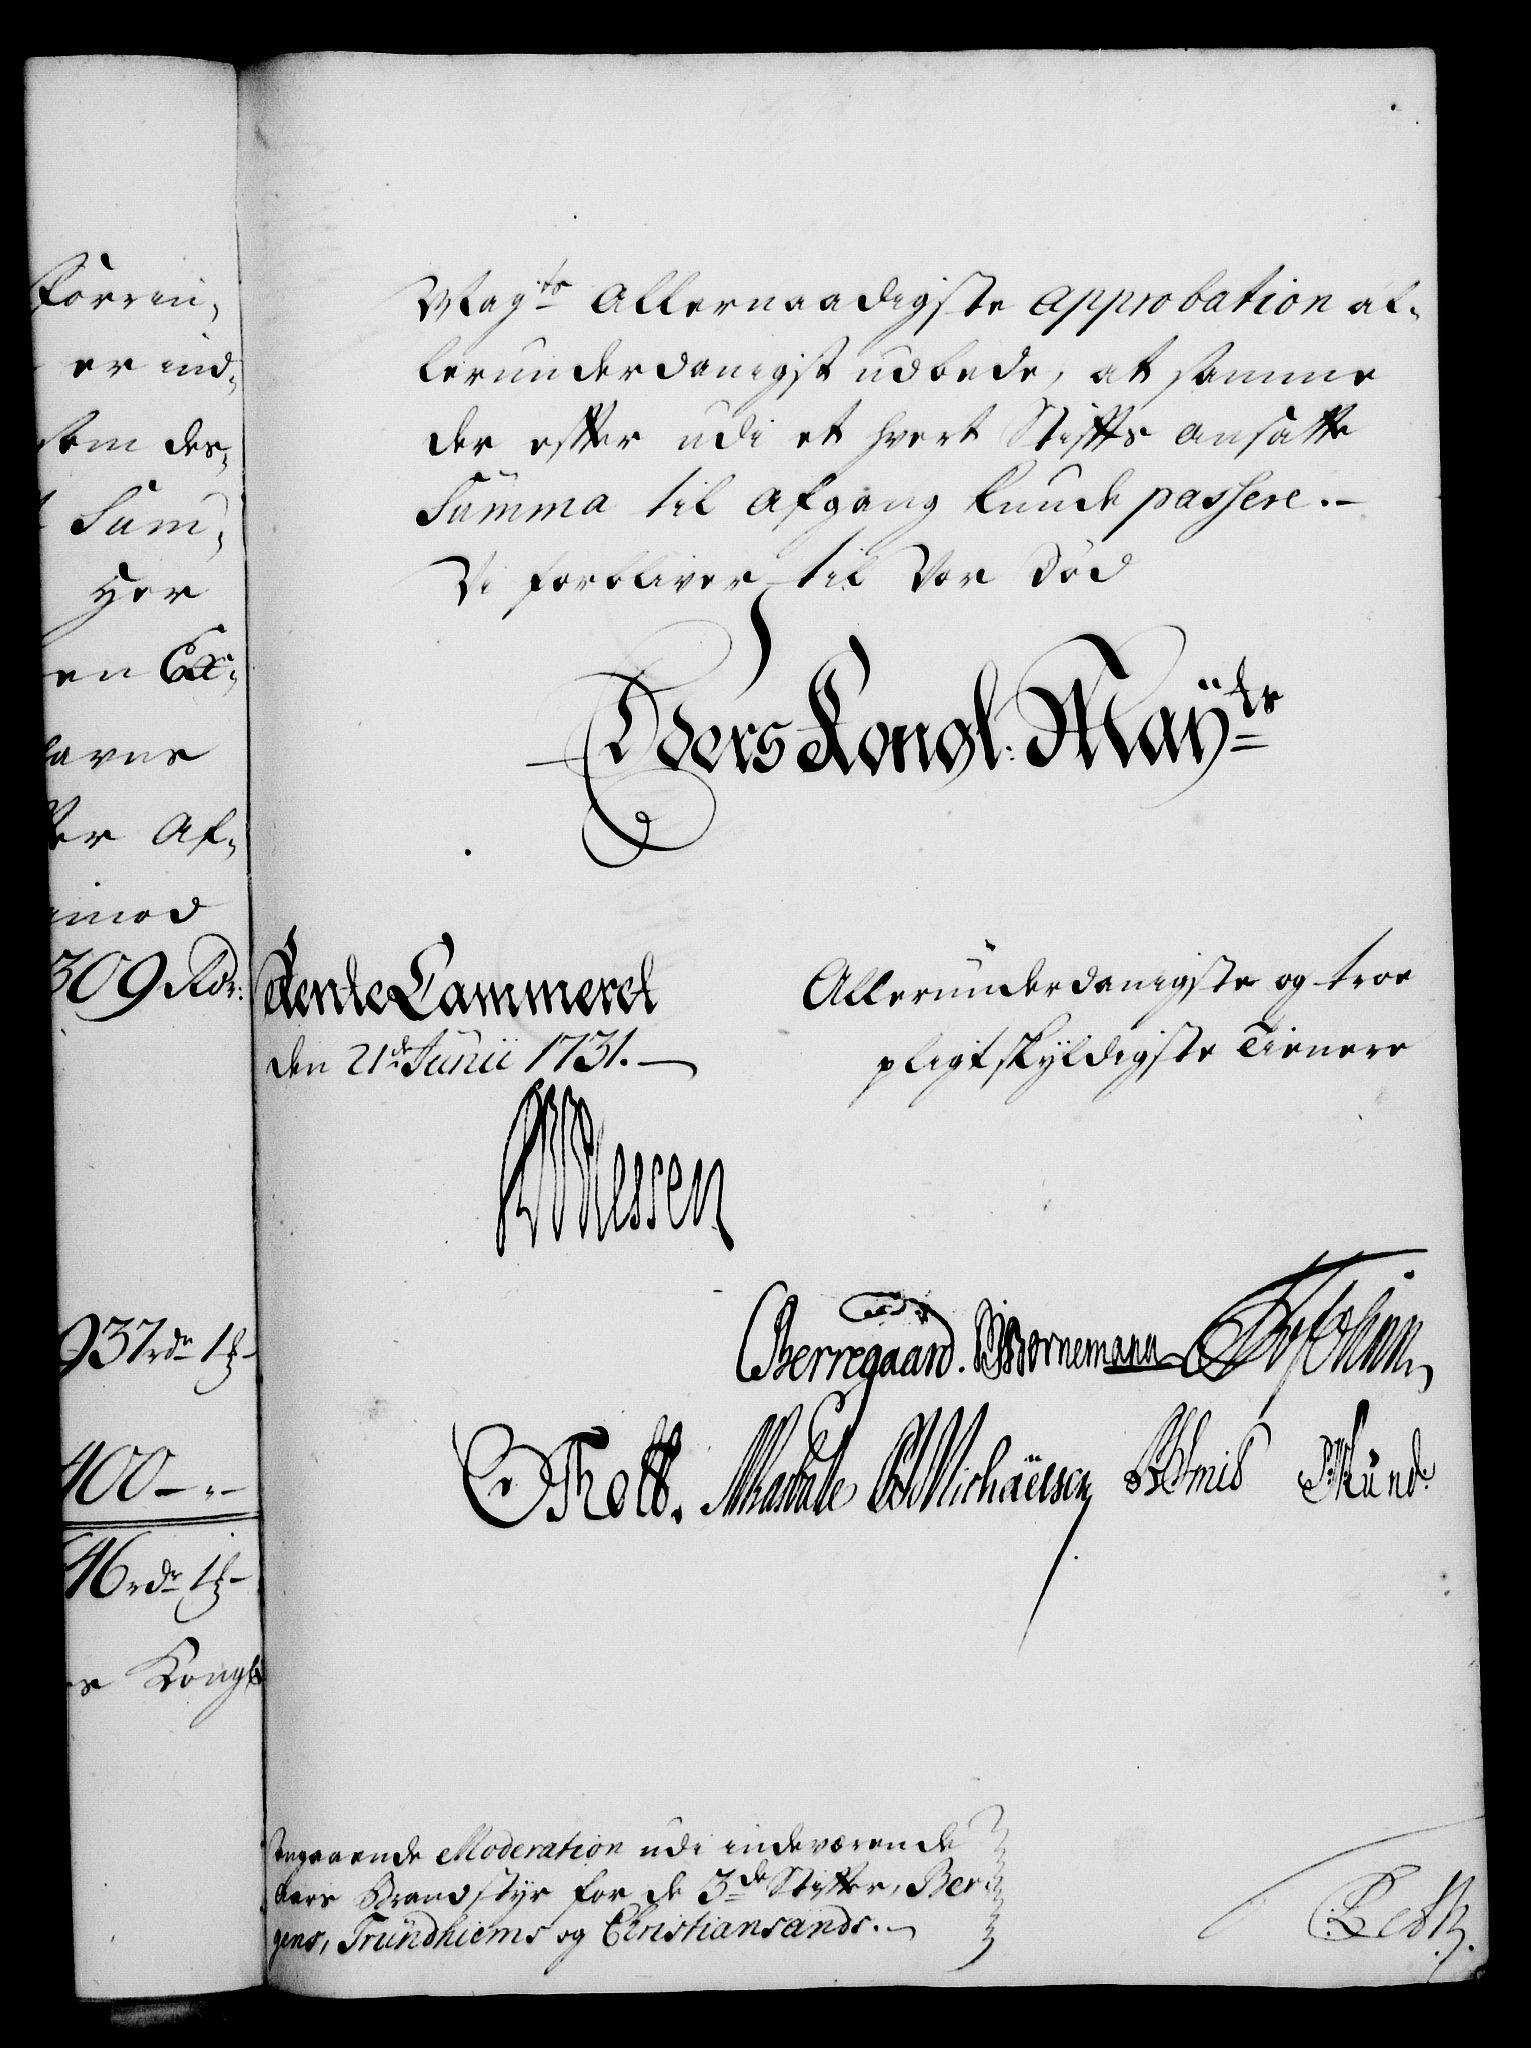 Forrin,
er ind,
som des,
Sum,
Her
en Ex,
Af,
imod
309 Rdr:
937 rdr 1 ß
400 – " –
46 rdr 1 ß –
Kongl
May.ts Allernaadigste approbation al,
lerunderdanigst udbede, at samme
der effter udi et hvert Stiffts ansatte
Summa til Afgang kunde passere. –
Vi forbliver til Vor Död
Eders Kongl: Maÿ.ts
Rente Cammeret
den 21.de Junii 1731. –
Allerunderdanigste og troe
pligtskÿldigste Tienere
Nessen
Berregaard. Bornemann
Thott. Michaëlsen Munch
Angaaende Moderation udi indeværende
Aars Brandstÿr for de 3.de Stiffter, Ber
gens, Trundhiems og Christiansands. –